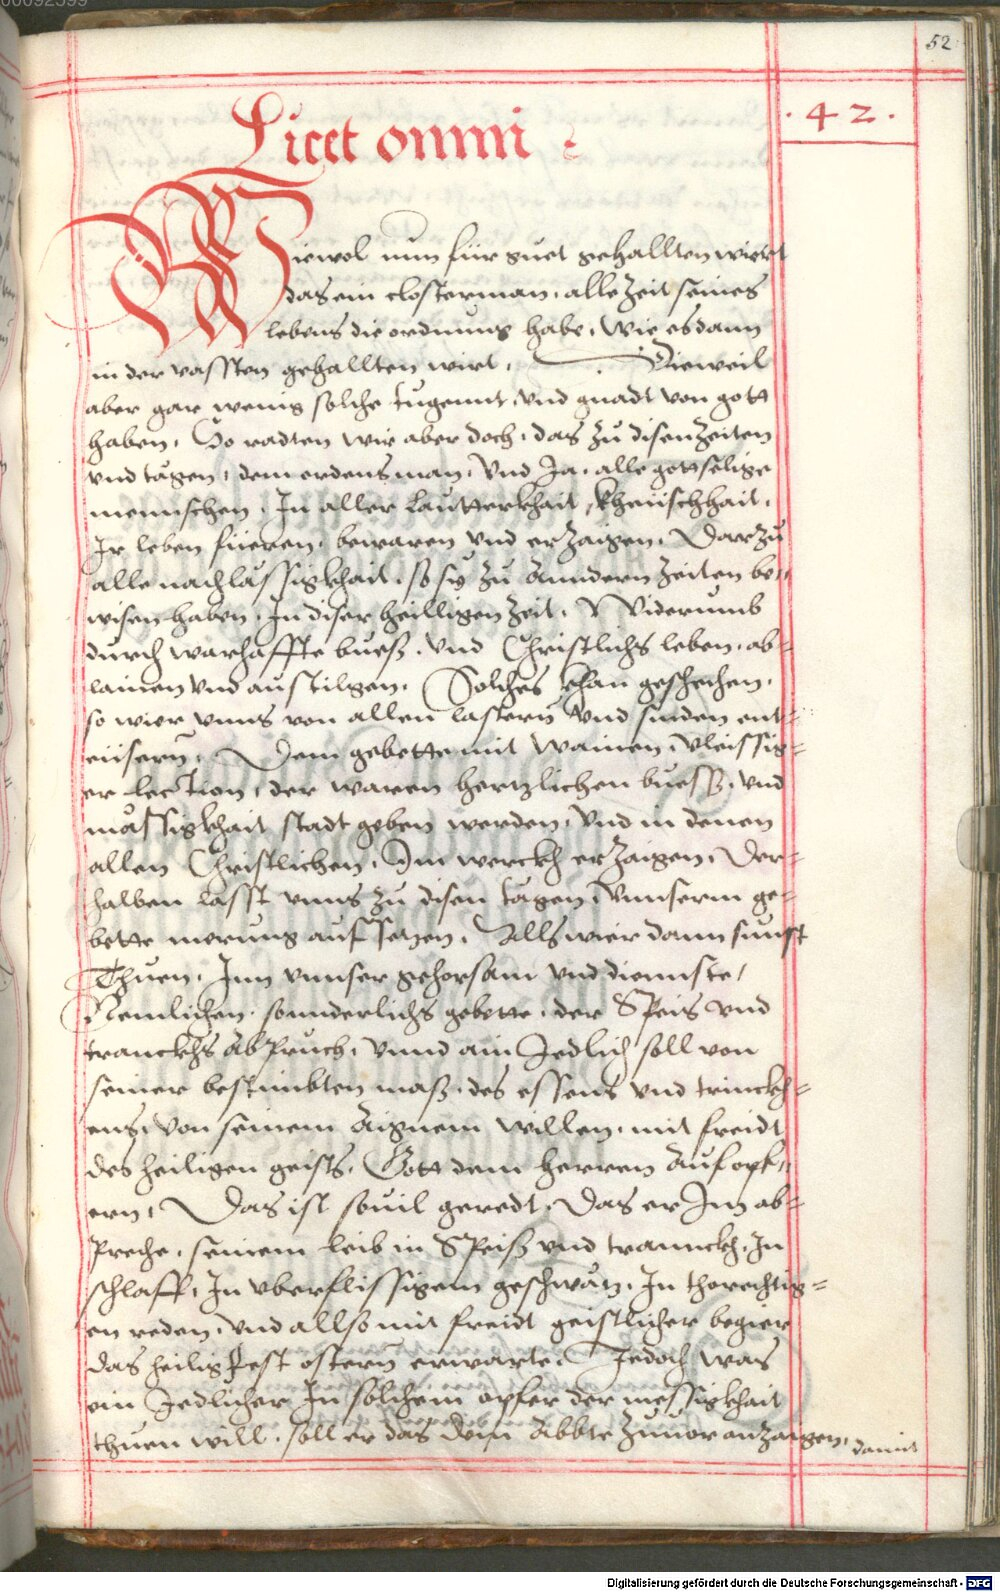 00092599
52
. 42 .
Licet omni
Wiewol nun für guet gehallten wiert
das ein closterman, alle zeit seines
lebens die ordnung habe, Wie es dann
in der vassten gehallten wirt. Dieweil
aber gar wenig solche tugennt, vnd gnadt von gott
haben, So radten wir aber doch, das zu disen Zeiten
vnd tägen, dem ordensman, Vnd Ja, alle gottselige
mennschen, In aller Lautterkhait, kheüschhait,
Ir leben füeren, bewaren vnd erzaigen, Darzu
alle nachlässigkhait, so sy zu Anndern Zeiten be„
wisen haben, In diser heilligen Zeit, Widerumb
durch warhaffte buesz, vnd Christlichs leben, ab=
lainen vnd austilgen, Solches khan geschehen,
so wier vnns von allen lastern Vnd sinden ent=
eüsern, Dem gebette mit wainen, Vleissig=
er lection, der waren hertzlichen buess, vnd
mässigkhait stadt geben werden, Vnd in denen
allen Christlichen, Im werckh erzaigen, Der=
halben lasst vnns zu disen tägen, Vnnserm ge=
bette merung aufsetzen, Alls wier dann sunst
Thuen, Inn vnnser gehorsam vnd diennste,
Nemlichen, sonnderlichs gebette, der Speis vnd
tranckhs Abpruch, Vnnd ain Jedlich soll von
seiner bestimbten masz, des essens vnd trinckh=
ens, Von seinem Aignem willen, mit freidt
des heiligen geists, Gott dem herren Aufopf„
ern, Das ist souil geredt, Das er Im ab=
preche, seinem leib in Speisz vnd tranckh, In
schlaff, In vberflissigem geschwätz, In thorechtig=
en reden, Vnd allso mit freidt geistlicher begier
das heilig fest ostern erwarte, Jedoch was
ein Jedlicher In solchem opfer der messigkhait
thuen will, soll er das dem Abbte zuuor anzaigen,
damit
Digitalisierung gefördert durch die Deutsche Forschungsgemeinschaft - DFG